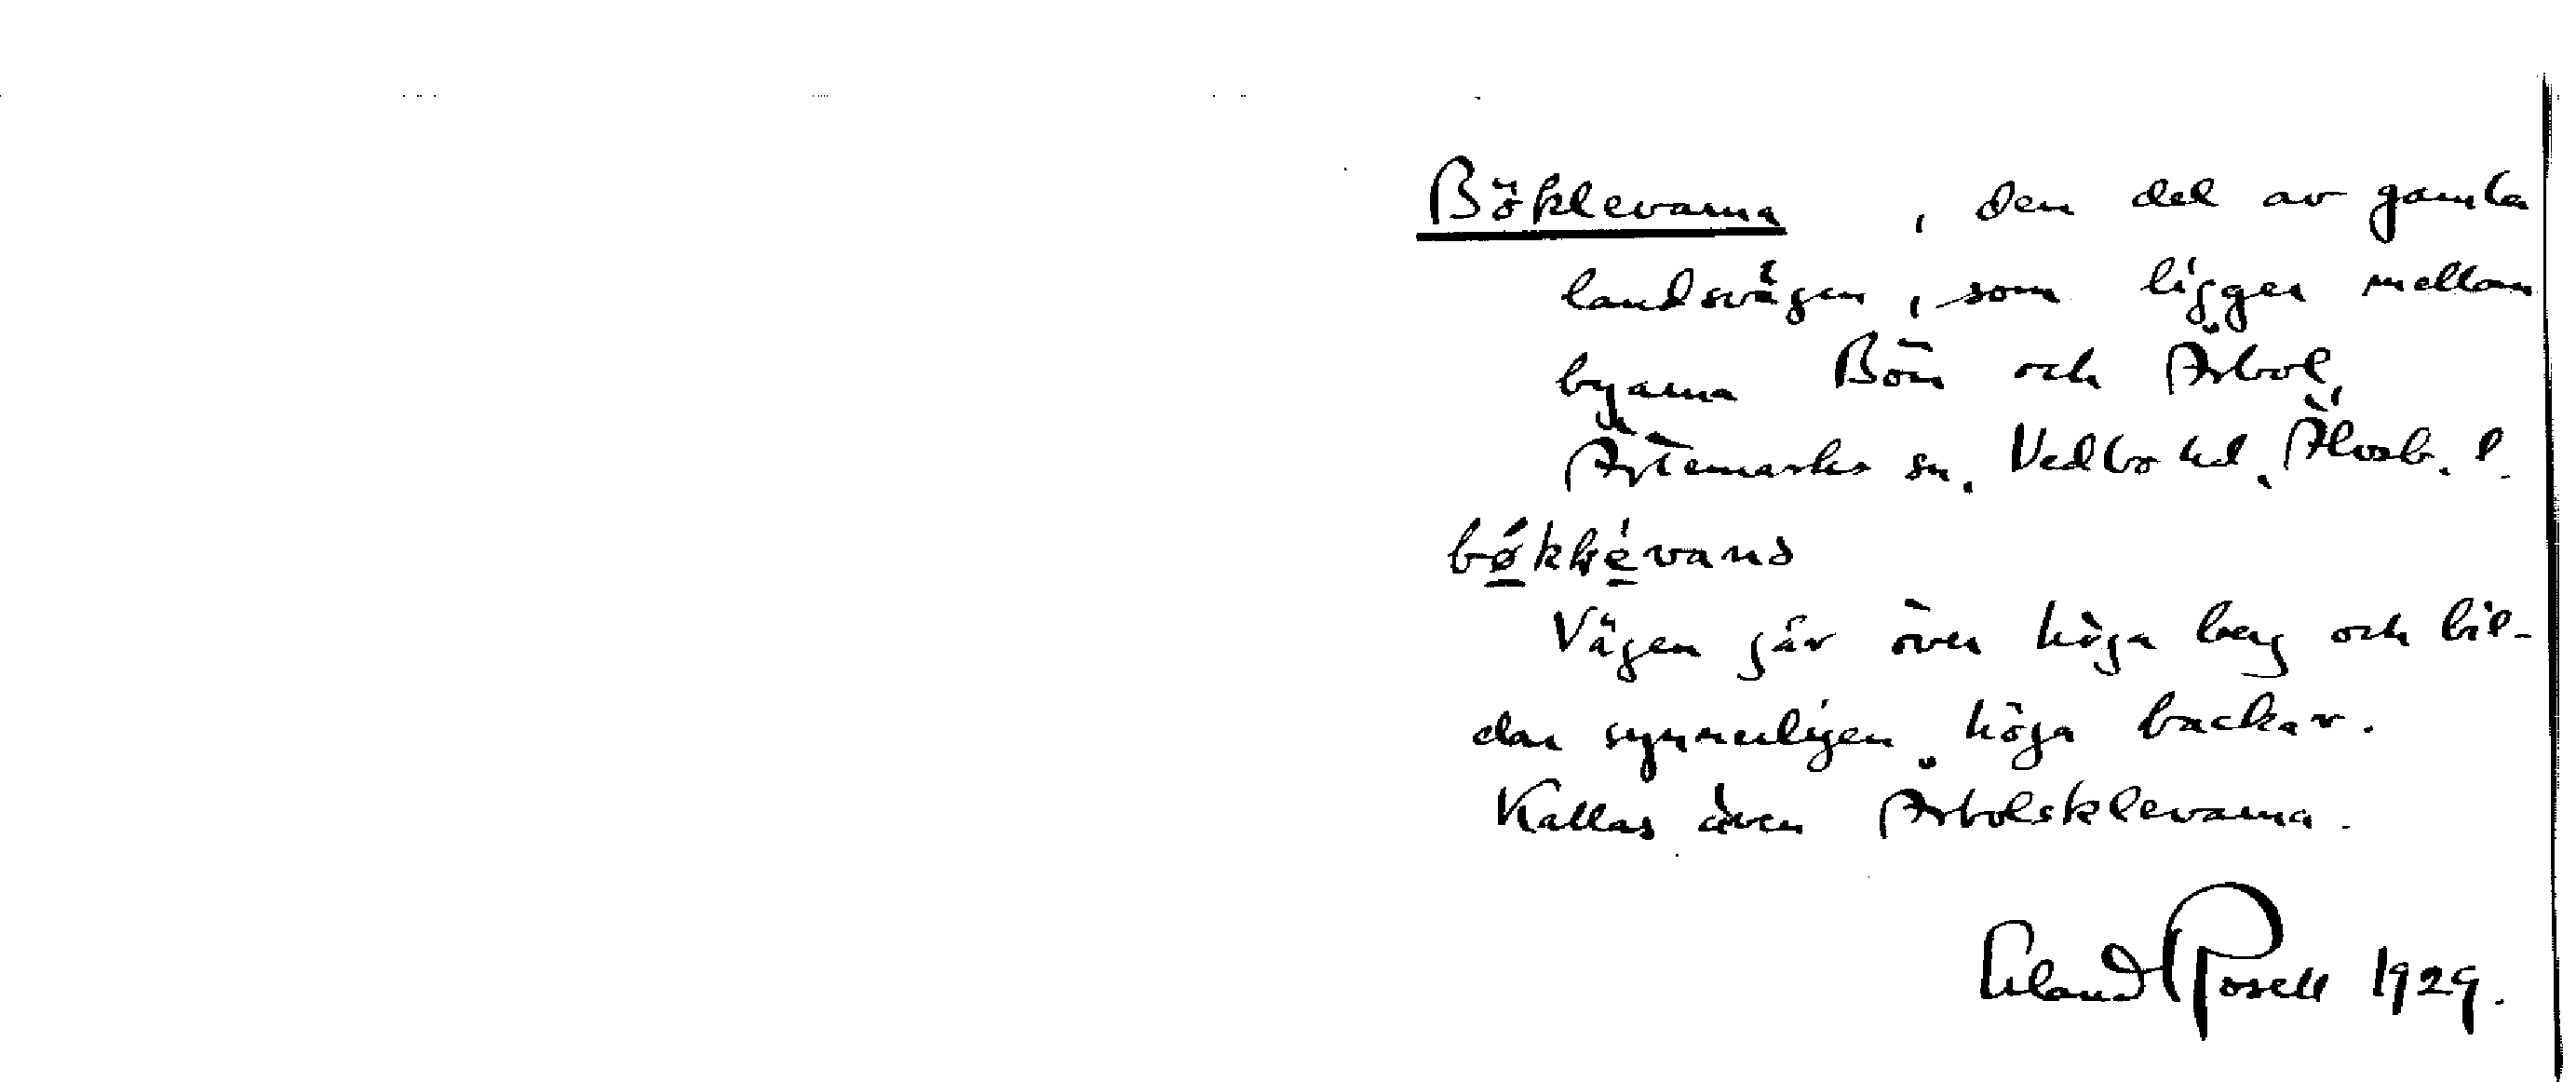 Böklevarna, den del av gamla
landsvägen, som ligger mellan
byarna Bön och Årbol,
Ärtemarks sn. Vedbo hd. Älvsb. l.
Vägen går över höga berg och bil-
dar synnerligen höga backar.
Kallas även Årbolsklevarna.
Erland Rosell 1929.